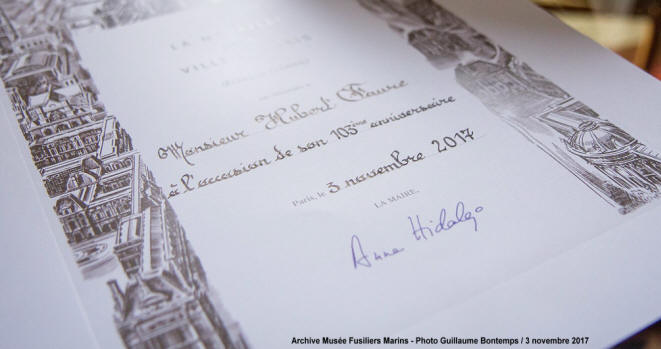 VILLE
Monsieur Hubert Faure
à l'occasion de son 103ème anniversaire
Paris, le 3 novembre 2017
LA MAIRE,
Anne Hidalgo
Archive Musée Fusiliers Marins - Photo Guillaume Bontemps / 3 novembre 2017